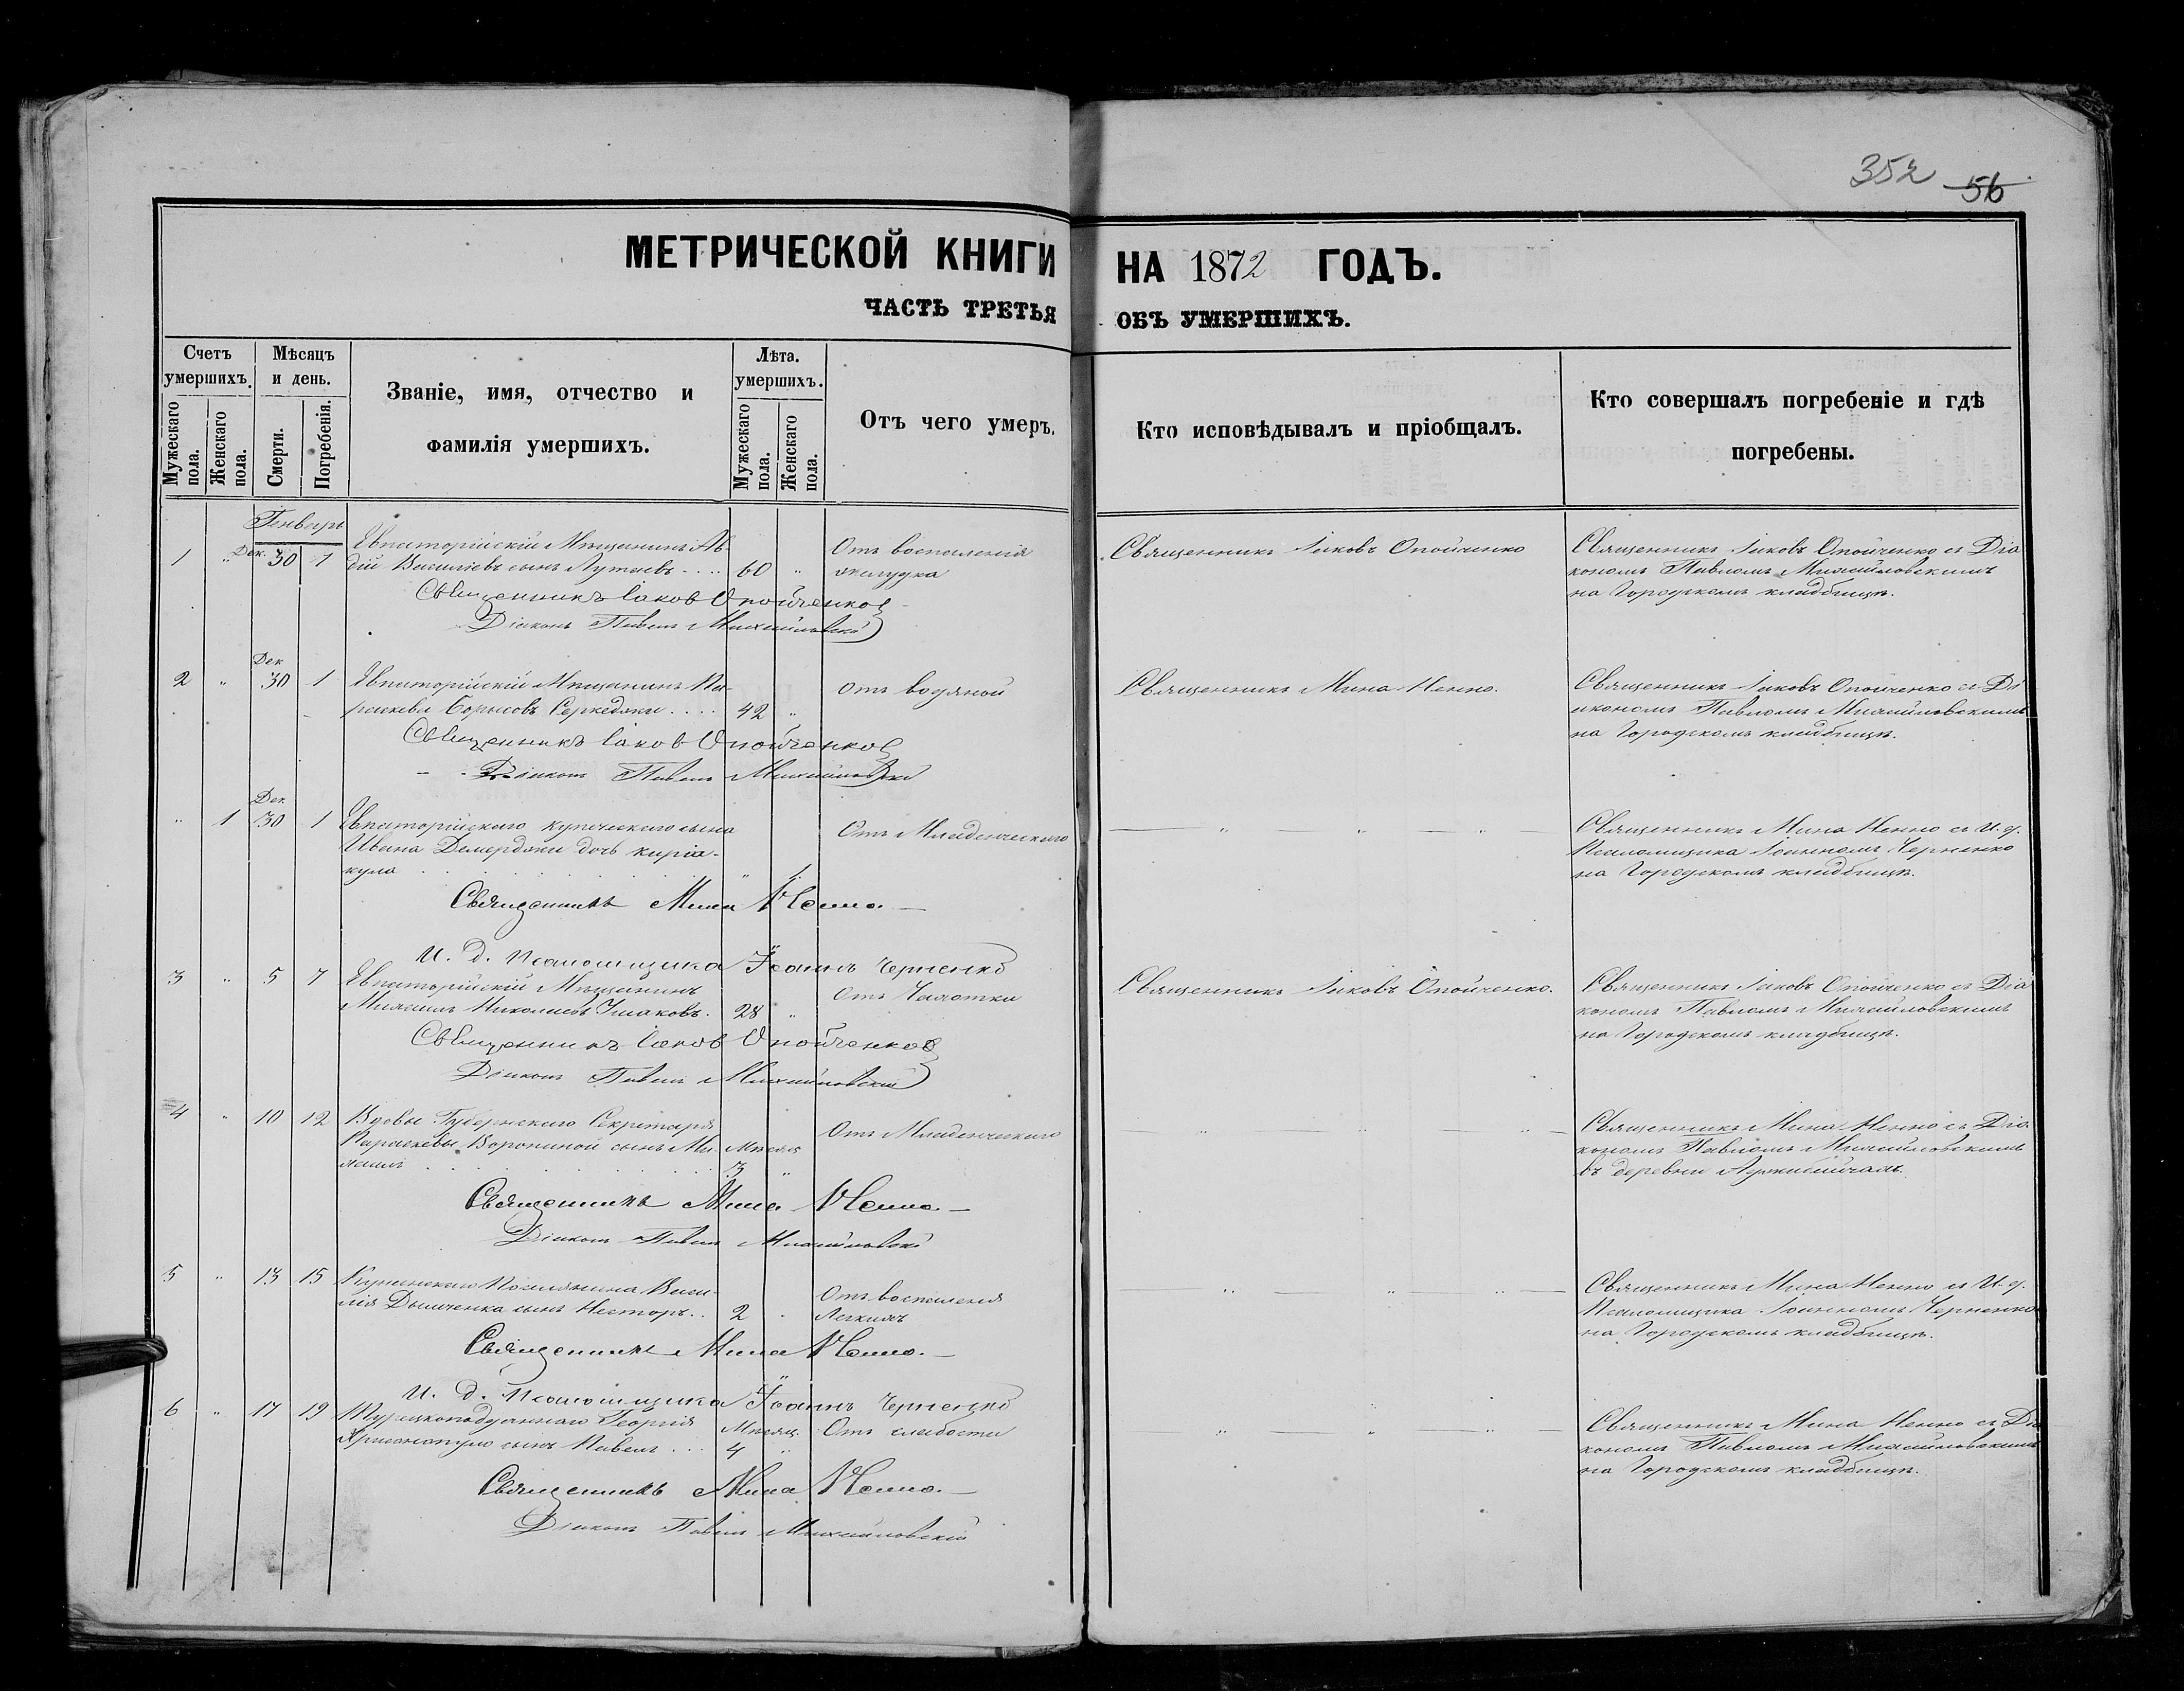 352 56
МЕТРИЧЕСКОЙ КНИГИ НА 1872 ГОДЪ.
ЧАСТЬ ТРЕТЬЯ ОБЪ УМЕРШИХЪ.
Счетъ умершихъ.
Мужескаго пола.
Женскаго пола.
Мѣсяцъ и день.
Смерти.
Погребенія.
Званіе, имя, отчество и
фамилія умершихъ.
Лѣта. умершихъ.
Мужескаго пола.
Женскаго пола.
Отъ чего умеръ.
Кто исповѣдывалъ и пріобщалъ.
Кто совершалъ погребеніе и гдѣ
погребены.
Генварь
1 " Дек. 30 1
Евпаторійскій Мѣщанинъ Ав-
дій Василіевъ сынъ .... 60 "
Отъ воспаленія
желудка
Священникъ Іаковъ Опойченко
Священникъ Іаковъ Опойченко съ Діа
кономъ Павломъ Михайловскимъ
на Городскомъ кладбищѣ.
Священникъ Іаковъ Опойченко
Діаконъ Павелъ Михайловскій
2 " Дек 30 1
Евпаторійскій Мѣщанинъ Па-
раскева .... 42 "
отъ водяной
Священникъ Мина Ненно.
Священникъ Іаковъ Опойченко съ Ді
акономъ Павломъ Михайловскимъ
на Городскомъ кладбищѣ.
Священникъ Іаковъ Опойченко
Діаконъ Павелъ Михайловскій
" 1 Дек 30 1
Евпаторійскаго купеческаго сына
Ивана Демерджи дочь Киріа-
кула
Отъ Младенческаго
Священникъ Мина Ненно съ И. д.
Псаломщика Іоанномъ Черненко
на Городскомъ кладбищѣ.
Священникъ Мина Ненно.
И. д. Псаломщика Іоаннъ Черненко
3 " 5 7
Евпаторійскій Мѣщанинъ
Михаилъ Николаевъ Ушаковъ. 28 "
Отъ Чахотки
Священникъ Іаковъ Опойченко.
Священникъ Іаковъ Опойченко съ Діа
кономъ Павломъ Михайловскимъ
на Городскомъ кладбищѣ.
Священникъ Іаковъ Опойченко
Діаконъ Павелъ Михайловскій
4 " 10 12
Вдовы Губернскаго Секретаря
Параскевы Ворониной сынъ Ми-
хаилъ Мѣсяц. 3 "
Отъ Младенческаго
Священникъ Мина Ненно съ Діа
кономъ Павломъ Михайловскимъ
въ деревни
Священникъ Мина Ненно.
Діаконъ Павелъ Михайловскій
5 " 13 15
Поселянина Васи-
лія сынъ Несторъ.. 2
Отъ воспаленія
Легкихъ
Священникъ Мина Ненно съ И. д.
Псаломщика Іоанномъ Черненко
на Городскомъ кладбищѣ.
Священникъ Мина Ненно.
И. д. Псаломщика Іоаннъ Черненко
6 " 17 19
Турецкоподданнаго Георгія
сынъ Павелъ ... Мѣсяц. 4 "
Отъ слабости
Священникъ Мина Ненно съ Діа
кономъ Павломъ Михайловскимъ
на Городскомъ кладбищѣ.
Священникъ Мина Ненно.
Діаконъ Павелъ Михайловскій